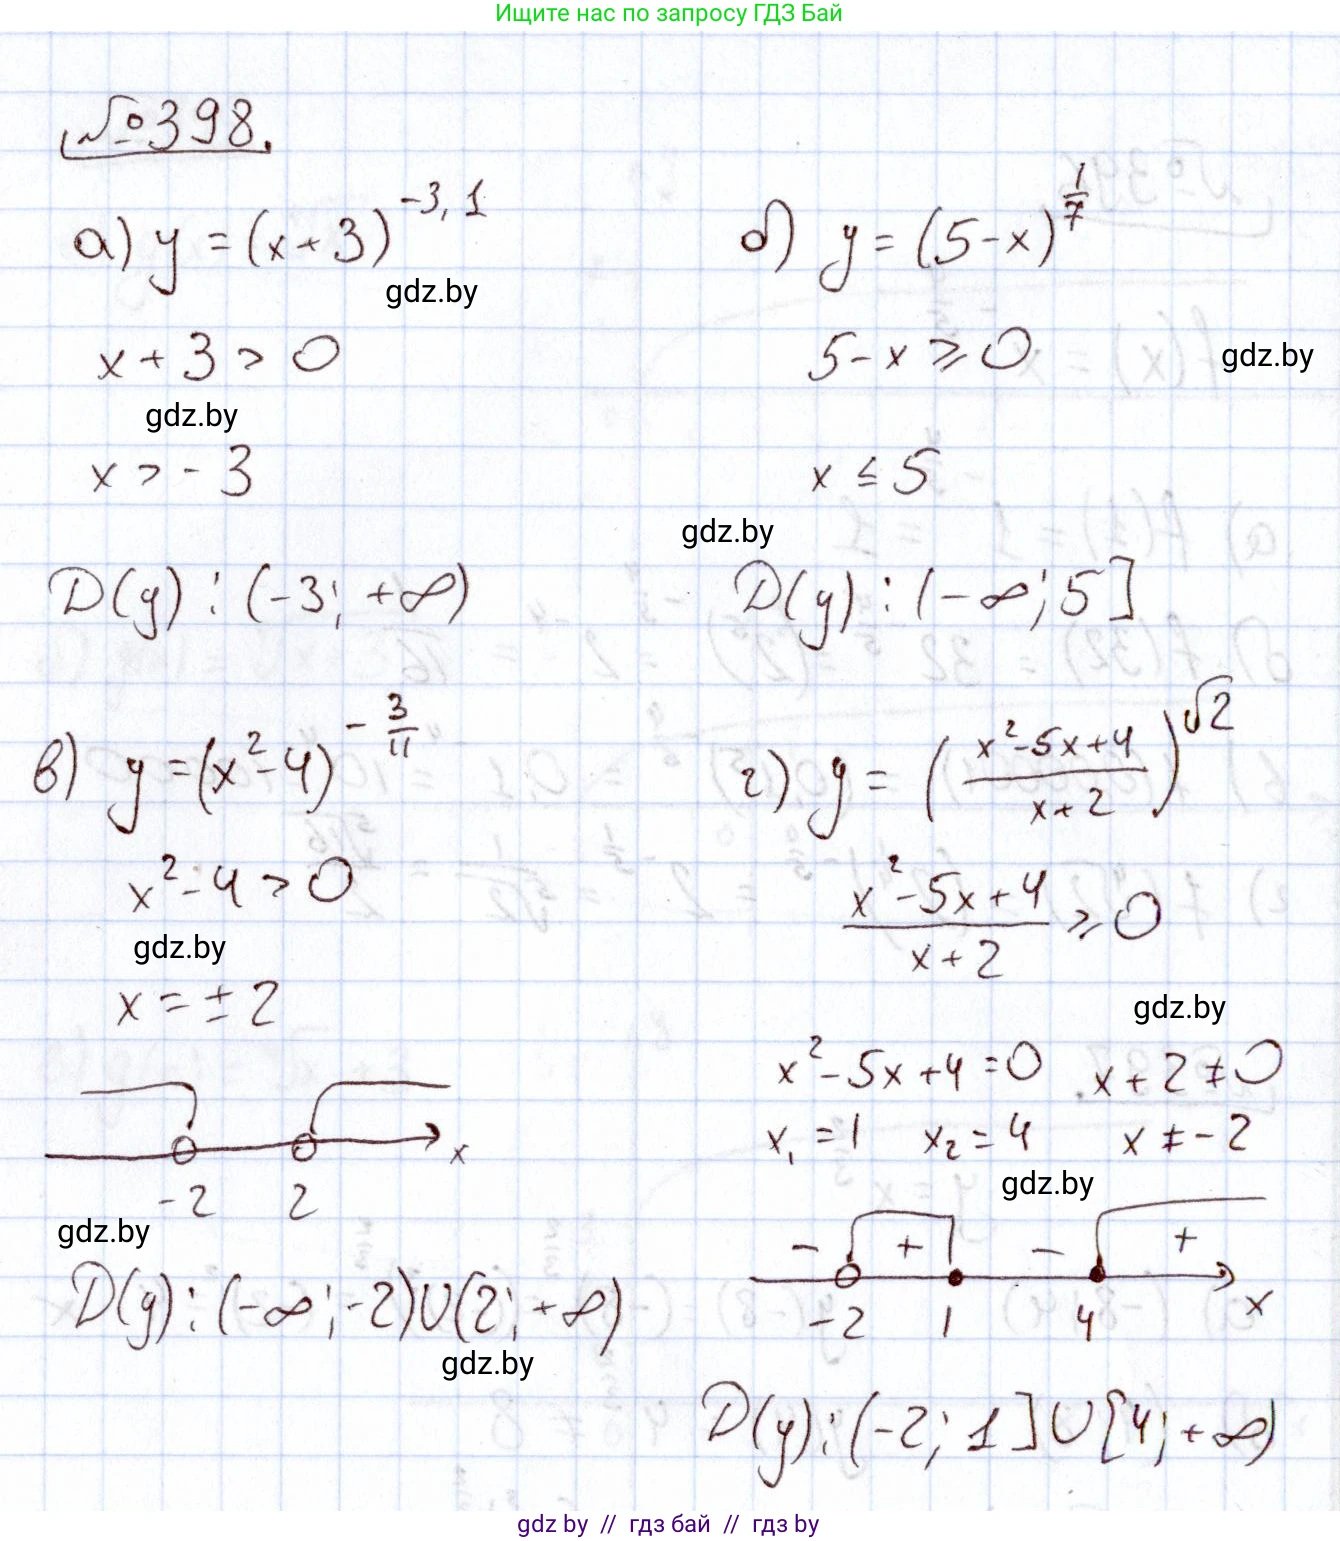 Ищите нас по запросу ГДЗ Бай
№398.
а) y = (x+3)^{-3,1}
gdz.by
x + 3 > 0
gdz.by
x > -3
D(y) : (-3; +∞)
б) y = (5-x)^{1/7}
5 - x ⩾ 0
gdz.by
x ≤ 5
gdz.by
D(y) : (-∞; 5]
в) y = (x²-4)^{-3/11}
x² - 4 > 0
gdz.by
x = ± 2
-2 2 x
gdz.by
D(y) : (-∞; -2)∪(2; +∞)
gdz.by
г) y = ((x²-5x+4)/(x+2))^{√2}
(x²-5x+4)/(x+2) ⩾ 0
gdz.by
x² - 5x + 4 = 0 x + 2 ≠ 0
x₁ = 1 x₂ = 4 x ≠ -2
gdz.by
- + - +
-2 1 4 x
D(y) : (-2; 1]∪[4; +∞)
gdz by // гдз бай // гдз by